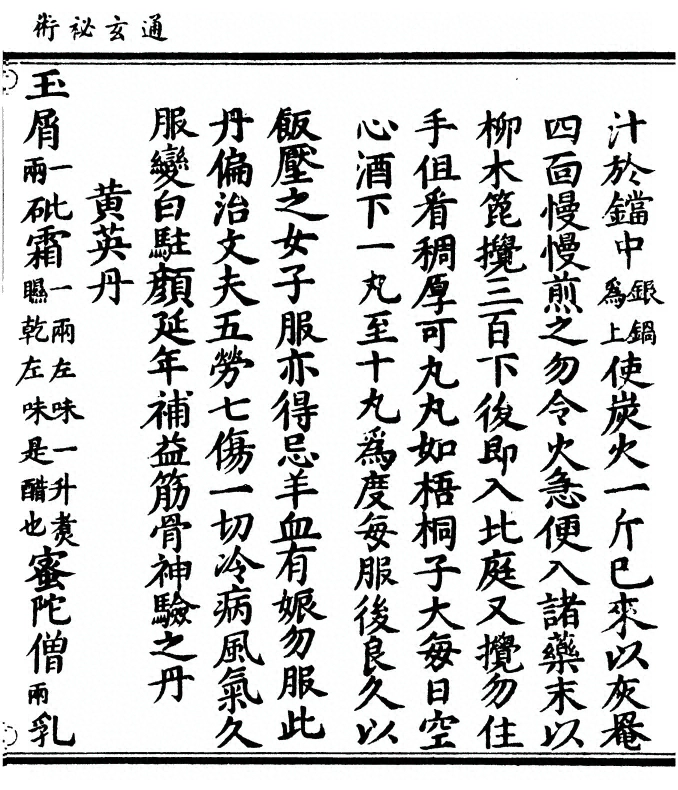 通玄祕術
汁於鐺中銀鍋爲上使炭火一斤已來以灰罨
四面慢慢煎之勿令火急便入諸藥末以
柳木篦攪三百下後即入比庭又攪勿住
手但看稠厚可丸丸如梧桐子大每日空
心酒下一丸至十丸爲度每服後良久以
飯壓之女子服亦得忌羊血有娠勿服此
丹偏治丈夫五勞七傷一切冷病風氣久
服變白駐顏延年補益筋骨神驗之丹
黃英丹
玉屑一兩砒霜一兩左味一升煑乾左味是醋也蜜陀僧兩乳